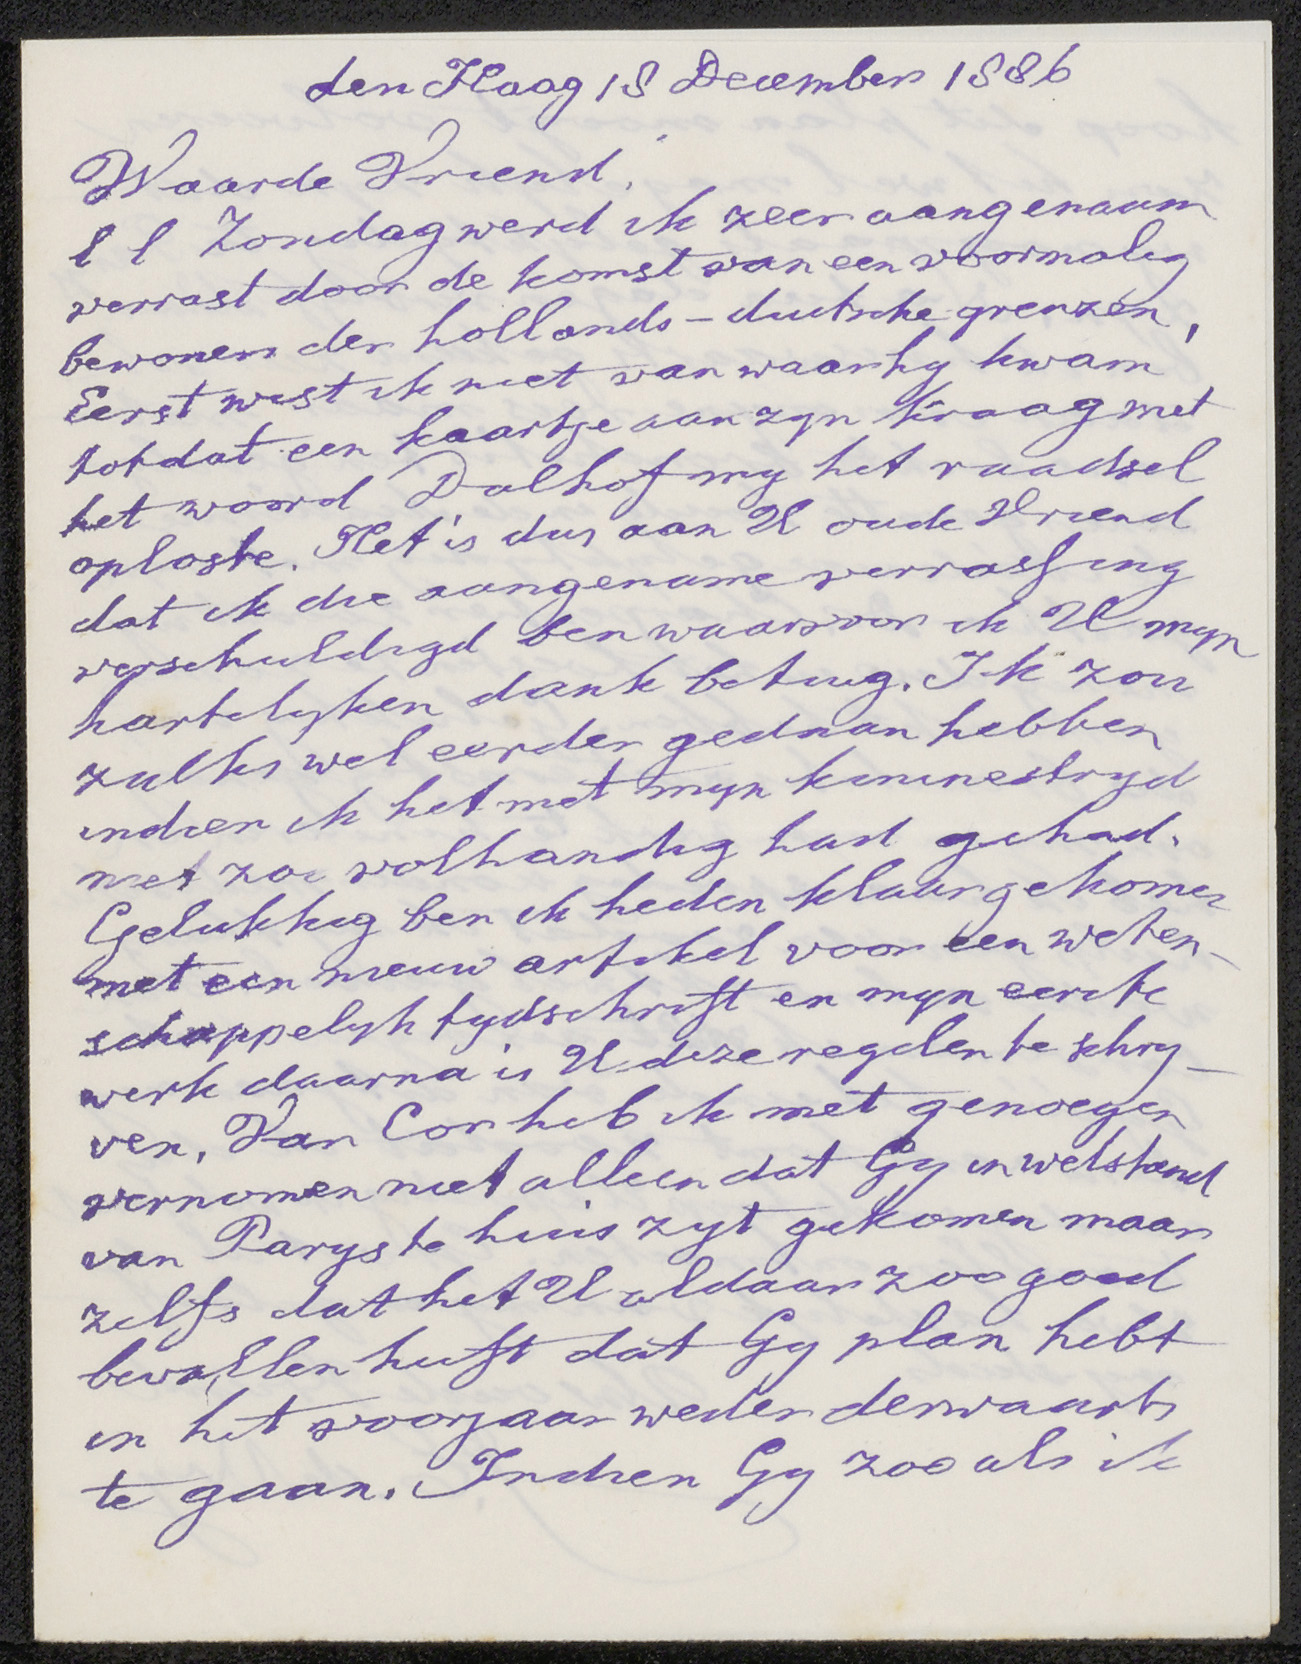 den Haag 18 December 1886
Waarde Vriend,
l l Zondag werd ik zeer aangenaam
verrast door de komst van een voormalig
bewoner der hollands-duitsche grenzen,
Eerst wist ik niet van waar hy kwam
totdat een kaartje aan zyn kraag met
het woord Dalhof my het raadsel
oploste. Het is dus aan U oude Vriend
dat ik die aangename verrassing
verschuldigd ben waarvoor ik U myn
hartelyken dank betuig. Ik zou
zulks wel eerder gedaan hebben
indien ik het met myn kininestryd
niet zoo volhandig had gehad.
Gelukkig ben ik heden klaar gekomen
met een nieuw artikel voor een weten-
schappelyk tydschrift en myn eerste
werk daarna is U deze regelen te schry-
ven. Van Cor heb ik met genoegen
vernomen niet alleen dat Gy in welstand
van Parys te huis zyt gekomen maar
zelfs dat het U aldaar zoo goed
bevallen heeft dat Gy plan hebt
in het voorjaar weder derwaarts
te gaan. Indien Gy zoo als ik